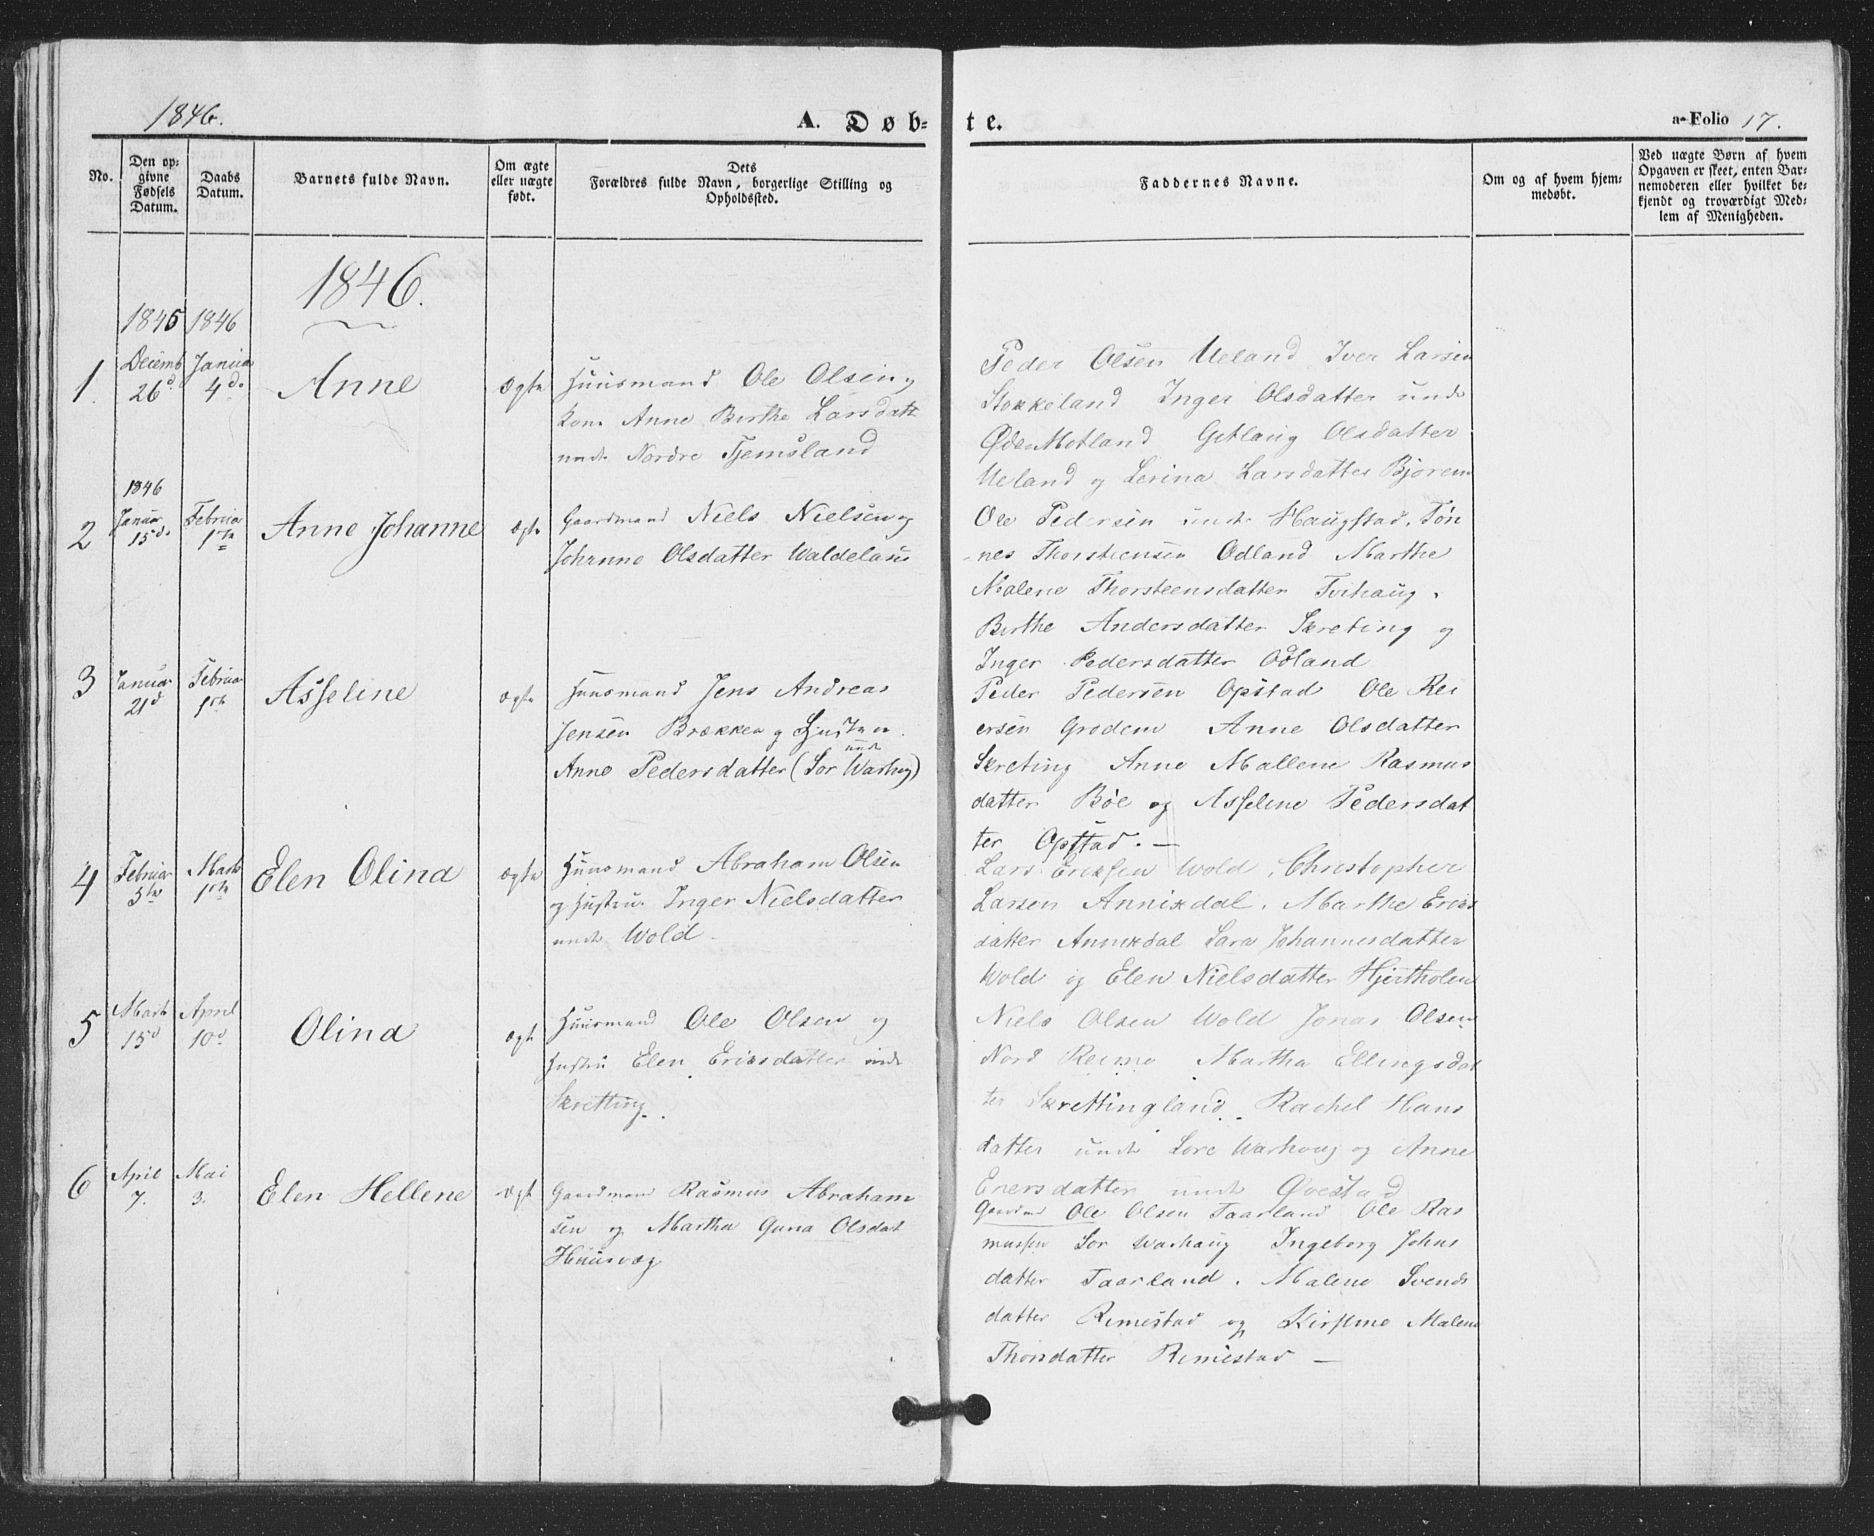 1846.
A. Døb=
te.
a-Folio 17.
No.
Den op=
givne
Fødsels
Datum.
Daabs
Datum.
Barnets fulde Navn.
Om ægte
eller uægte
født.
Dets
Forældres fulde Navn, borgerlige Stilling og
Opholdssted.
Faddernes Navne.
Om og af hvem hjem=
medøbt.
Ved uægte Børn af hvem
Opgaven er skeet, enten Bar=
nemoderen eller hvilket be=
kjendt og troværdigt Med=
lem af Menigheden.
1846.
1845 1846
1.
Decemb
26d
Janua
4d.
Anne
Ægte
Huusmand Ole Olsen og
Kone Anne Berthe Larsdatt
unde Nordre Tjemsland
Peder Olsen Ueland Iver Larsen
Stokkeland Inger Olsdatter unde
Øde Motland Getlaug Olsdatter
Ueland og Serina Larsdatter
2
1846
Januar
15d.
Februa
1te
Anne Johanne
ægte
Gaardmand Niels Nielsen og
Johanne Olsdatter
Ole Pedersen unde Haugstad. Tøn
nes Thorsteensen Odland Marthe
Malene Thorsteensdatter Tvihaug.
Berthe Andersdatter Skreting og
Inger Pedersdatter Odland
3
Januar
21d
Februa
1ste
Asseline
ægte
Huusmand Jens Andreas
Jensen Brækken og Hustru
Anne Pedersdatter (Sør unde Warhug)
Peder Pedersen Opstad Ole Rei
ersen Grødem Anne Olsdatter
Skreting Anne Mallene Rasmus
datter Bøe og Asseline Pedersdat
ter Opstad. —
4
Februar
5te
Marts
1ste
Elen Olina
ægte
Huusmand Abraham Olsen
og Hustru Inger Nielsdatter
unde Wold
Lars Eriksen Wold, Christopher
Larsen Annixdal. Marthe Erics
datter Annixdal Sara Johannesdatter
Wold og Elen Nielsdatter Hjertholen
5
Marts
15d
April
10d
Olina
ægte
Huusmand Ole Olsen og
Hustru Elen Ericsdatter unde
Skretting.
Niels Olsen Wold Jonas Olsen
Nord Reime Martha Ellingsdat
ter Skrettingland. Rachel Hans
datter unde Søre Warhoug og Anne
Enersdatter unde Øvestad
6
April
7.
Mai
3.
Elen Hellene
ægt
Gaardmand Rasmus Abraham
sen og Martha Guna Olsdat
Huusvæg
Gaardmd Ole Olsen Taarland Ole Ras
mussen Sør Warhaug Ingeborg Johns
datter Taarland. Malene Svends
datter Rimestad og Kirstine Malene
Thorsdatter Rimestad —